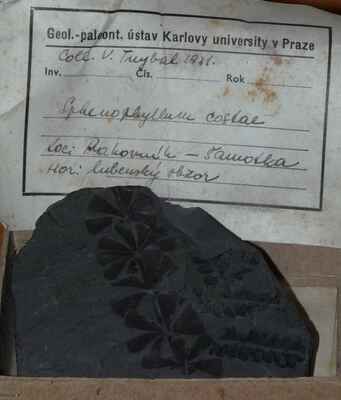 Geol.-paleont. ústav Karlovy university v Praze
Coll. V. Trybal 1931.
Inv. Čís. Rok
Sphenophyllum costae
Loci Rakovník – Samotka
Hor: lubenský obzor